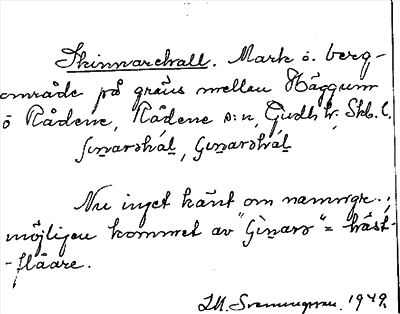 Skinnarehall. Mark o. berg-
område på gräns mellan Häggum
o Rådene, Rådene s:n, Gudh. hr, Skb. l.
ʃinarəhál, Ginarəhál
Nu inget känt om namnge.;
möjligen kommet av "Ginarə" = häst-
-flåare.
1949